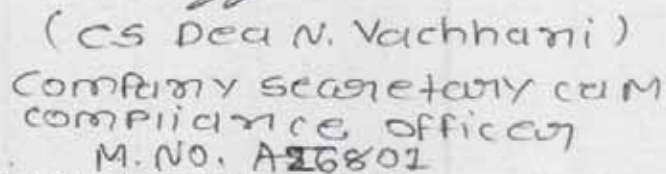 (CS Dea N. Vachhani)
Company secretary cum
compliance officer
M. NO. A26802